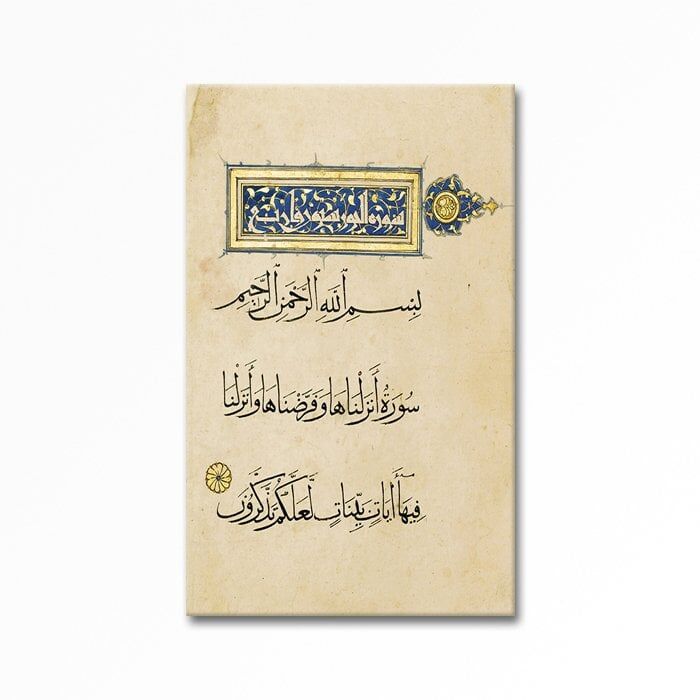 سورة النور ستون واربع
بِسْمِ ٱللَّهِ ٱلرَّحْمَنِ ٱلرَّحِيمِ
سُورَةٌ أَنْزَلْنَاهَا وَفَرَضْنَاهَا وَأَنْزَلْنَا
فِيهَا أَيَاتٍ بَيِّنَاتٍ لَّعَلَّكُمْ تَذَكَّرُونَ